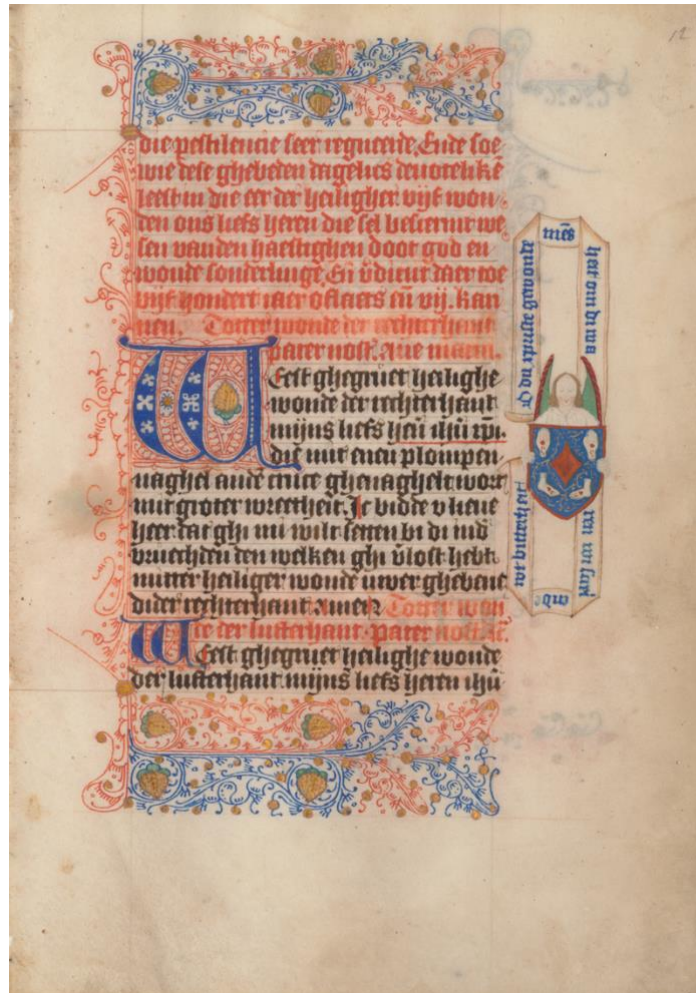 die pestilencie seer regneerde. Ende soe
wie dese ghebeden dagelics deuotelikē
leest in die eer der heiligher vijf won
den ons liefs heren die sel bescermt we
sen vanden haestighen doot god en
wonde sonderlinge. Eñ v̄dient daer toe
vijf hondert iaer oflaets eñ vij. kari
nen. Totter wonde der rechterhant
pater nost. aue maria.
Weest ghegruet heilighe
wonde der rechterhant
mijns liefs heñ ihū xp̄i.
die mit enen plompen
naghel ande cruce ghenaghelt wort
mit groter wreetheit. Ic bidde v lieue
heer dat ghi mi wilt setten bi di ind
vruechden den welken ghi v̄lost hebt
mitter heiliger wonde uwer ghebene
dider rechterhant. amen. Totter won
de der lufterhant. pater noster.
Weest ghegruet heilighe wonde
der lufterhant. mijns liefs heren ihū
O du xpūste gewonde
mēs
wt bitterheit
12